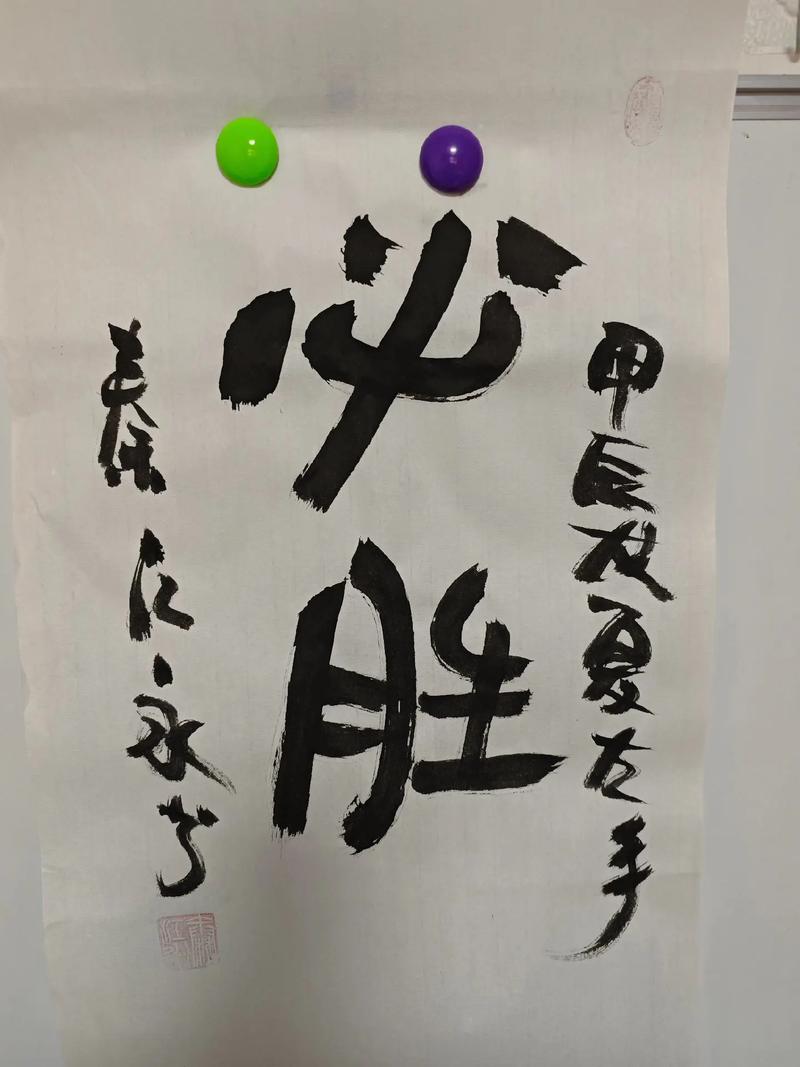 甲辰夏左手
必胜
秦江永书